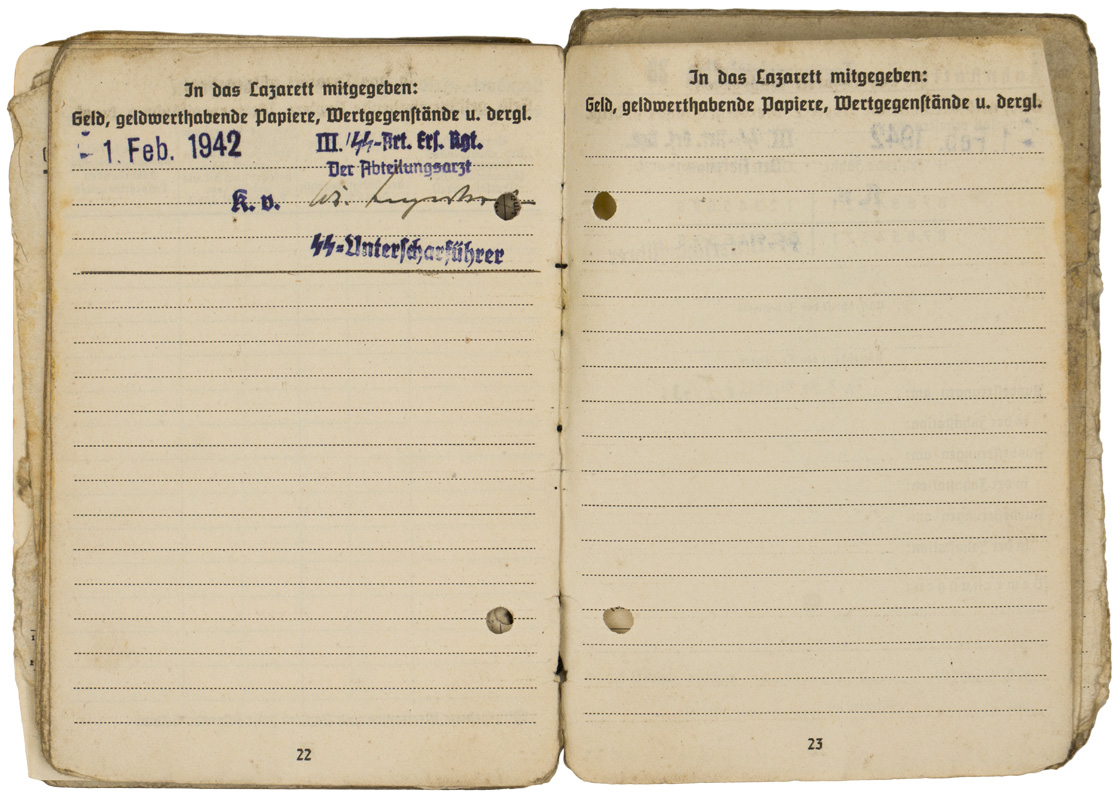 In das Lazarett mitgegeben:
Geld, geldwerthabende Papiere, Wertgegenstände u. dergl.
- 1. Feb. 1942 III./SS-Art. Ers. Rgt.
Der Abteilungsarzt
K. v.
SS-Unterscharführer
22
In das Lazarett mitgegeben:
Geld, geldwerthabende Papiere, Wertgegenstände u. dergl.
23